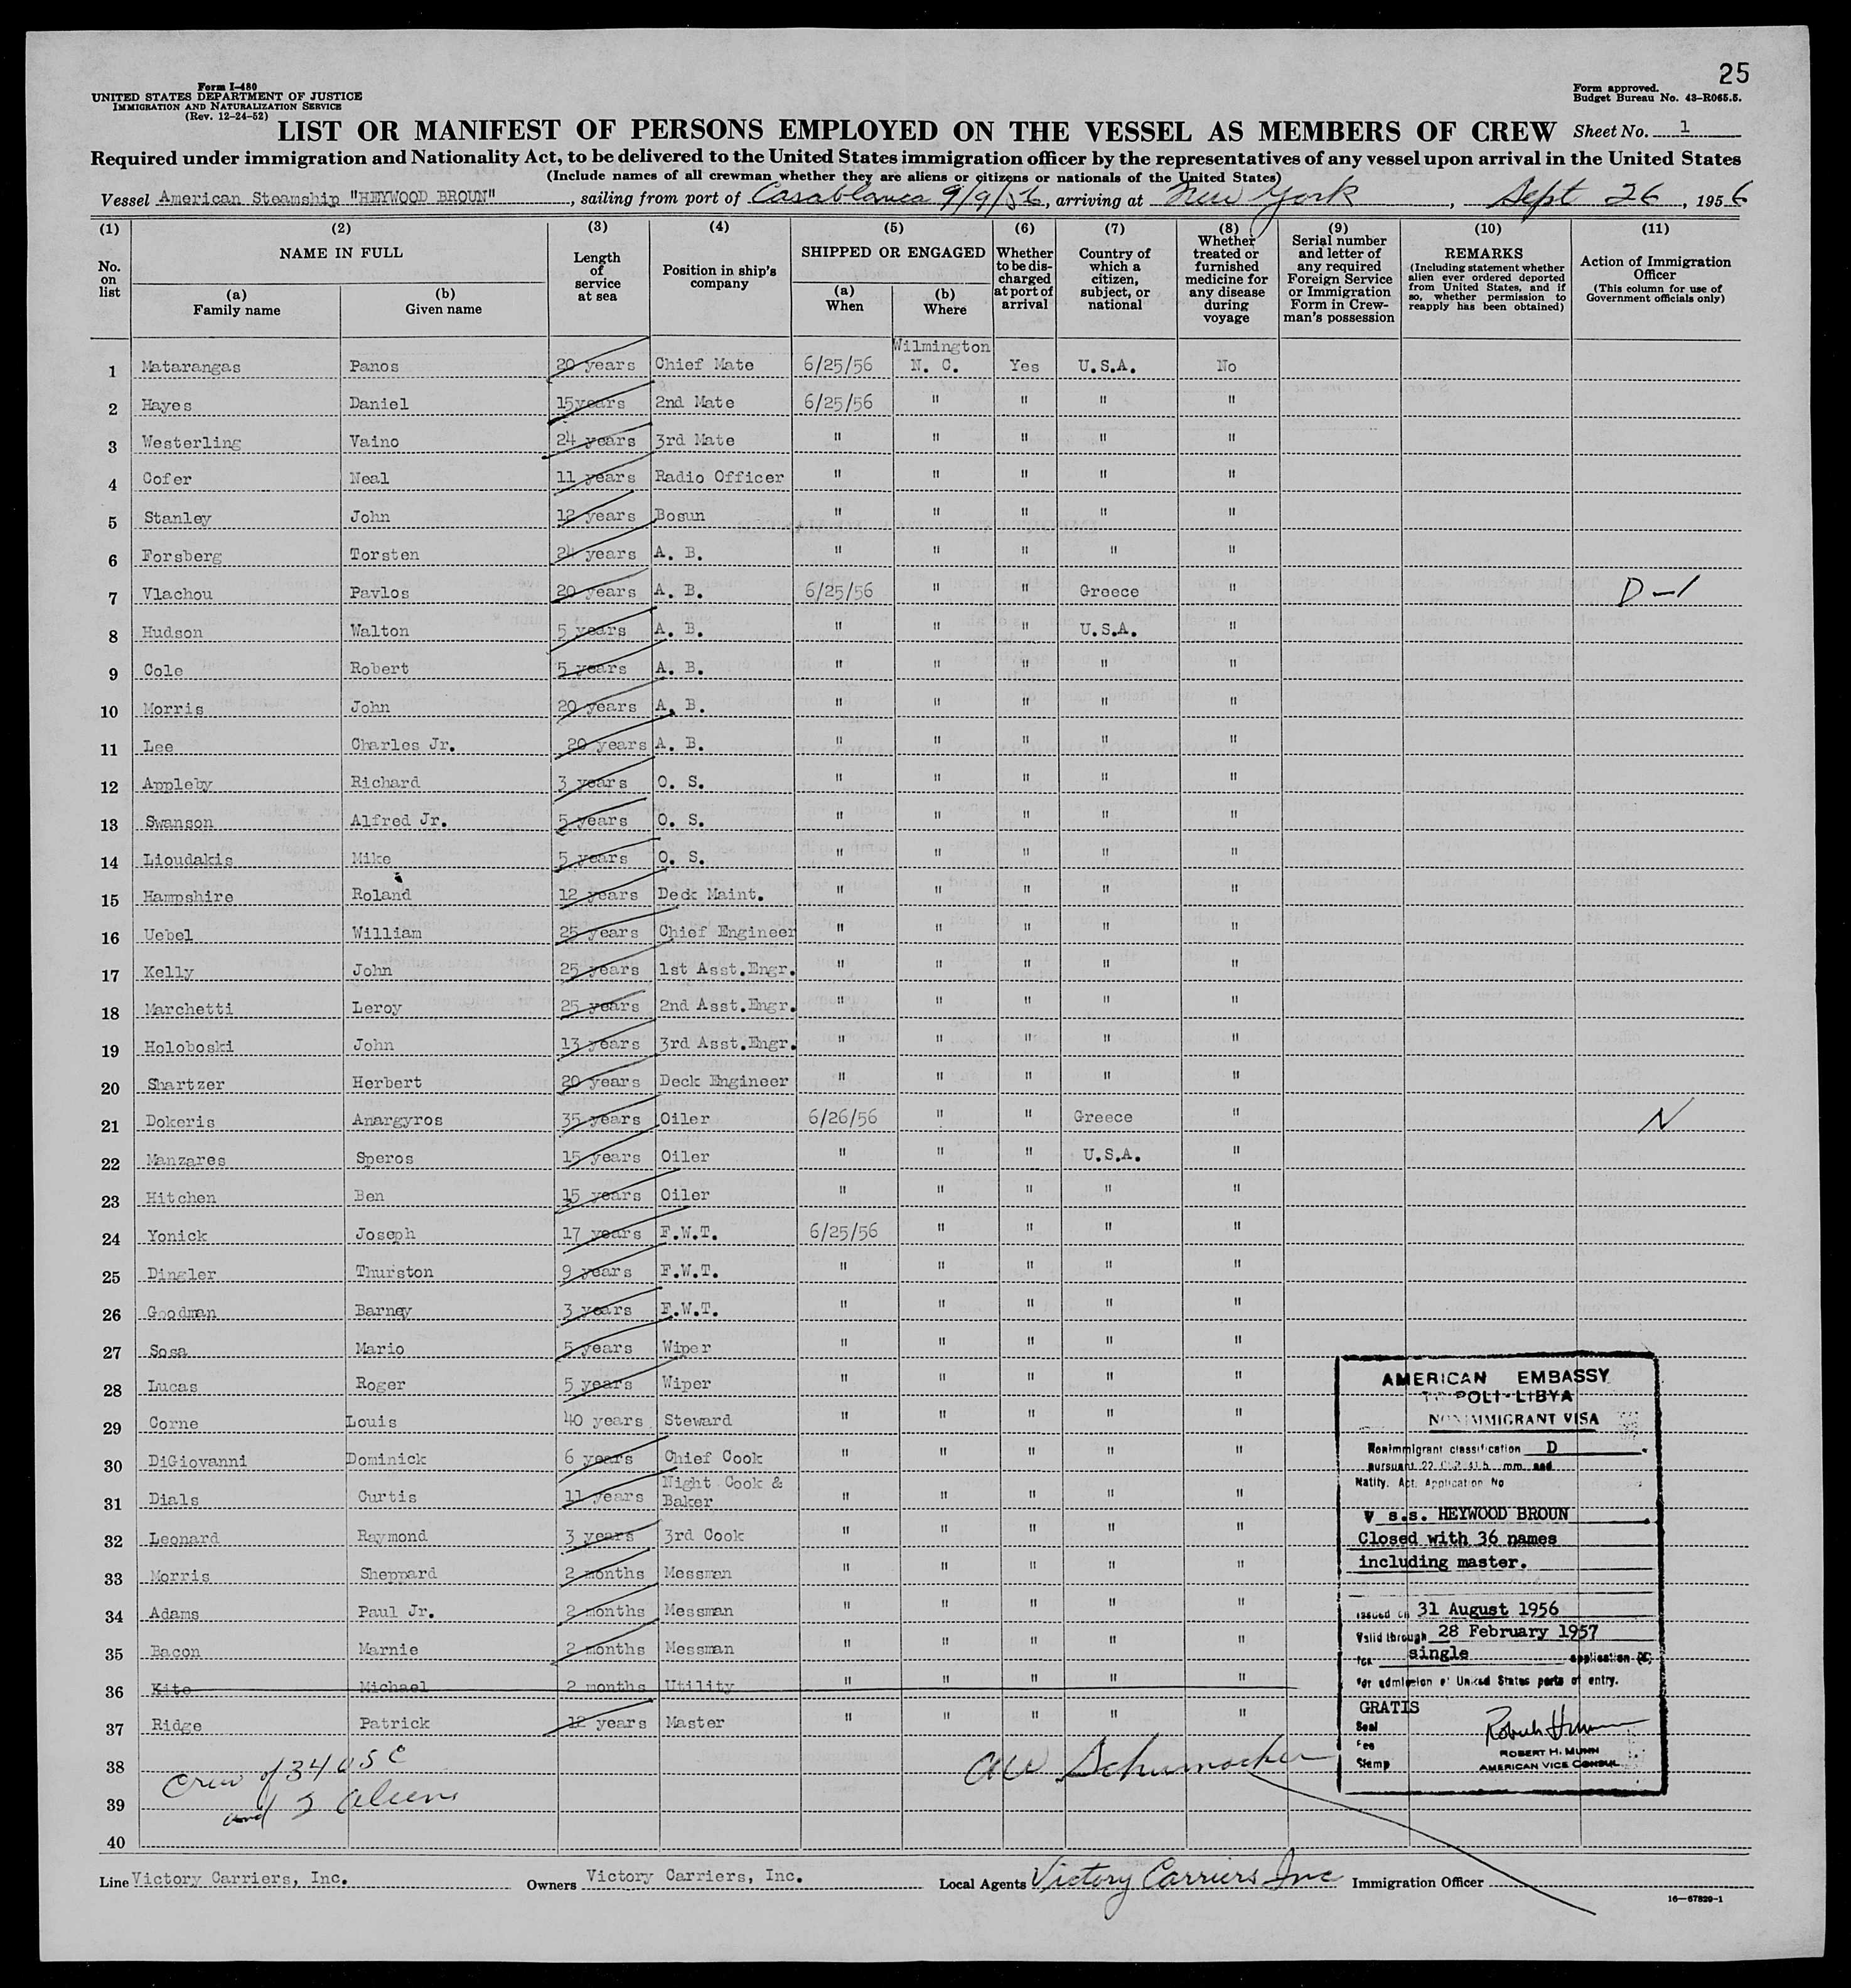 25
Form I-480
UNITED STATES DEPARTMENT OF JUSTICE
IMMIGRATION AND NATURALIZATION SERVICE
(Rev. 12-24-52)
Form approved.
Budget Bureau No. 43-R065.5.
LIST OR MANIFEST OF PERSONS EMPLOYED ON THE VESSEL AS MEMBERS OF CREW Sheet No. 1
Required under immigration and Nationality Act, to be delivered to the United States immigration officer by the representatives of any vessel upon arrival in the United States
(Include names of all crewman whether they are aliens or citizens or nationals of the United States)
Vessel American Steamship "HEYWOOD BROUN", sailing from port of Casablanca 9/9/56, arriving at New York, Sept 26, 1956
(1) (2) (3) (4) (5) (6) (7) (8) (9) (10) (11)
No. on list
NAME IN FULL
(a) Family name
(b) Given name
Length of service at sea
Position in ship's company
SHIPPED OR ENGAGED
(a) When
(b) Where
Whether to be discharged at port of arrival
Country of which a citizen, subject, or national
Whether treated or furnished medicine for any disease during voyage
Serial number and letter of any required Foreign Service or Immigration Form in Crewman's possession
REMARKS
(Including statement whether alien ever ordered deported from United States, and if so, whether permission to reapply has been obtained)
Action of Immigration Officer
(This column for use of Government officials only)
1 Matarangas Panos 20 years Chief Mate 6/25/56 Wilmington N. C. Yes U.S.A. No
2 Hayes Daniel 15years 2nd Mate 6/25/56 " " " "
3 Westerling Vaino 24 years 3rd Mate " " " " "
4 Cofer Neal 11 years Radio Officer " " " " "
5 Stanley John 12 years Bosun " " " " "
6 Forsberg Torsten 24 years A. B. " " " " "
7 Vlachou Pavlos 20 years A. B. 6/25/56 " " Greece " D-1
8 Hudson Walton 5 years A. B. " " " U.S.A. "
9 Cole Robert 5 years A. B. " " " " "
10 Morris John 20 years A. B. " " " " "
11 Lee Charles Jr. 20 years A. B. " " " " "
12 Appleby Richard 3 years O. S. " " " " "
13 Swanson Alfred Jr. 5 years O. S. " " " " "
14 Lioudakis Mike 5 years O. S. " " " " "
15 Hampshire Roland 12 years Deck Maint. " " " " "
16 Uebel William 25 years Chief Engineer " " " " "
17 Kelly John 25 years 1st Asst.Engr. " " " " "
18 Marchetti Leroy 25 years 2nd Asst.Engr. " " " " "
19 Holoboski John 13 years 3rd Asst.Engr. " " " " "
20 Shartzer Herbert 20 years Deck Engineer " " " " "
21 Dokeris Anargyros 35 years Oiler 6/26/56 " " Greece " N
22 Manzares Speros 15 years Oiler " " " U.S.A. "
23 Hitchen Ben 15 years Oiler " " " " "
24 Yonick Joseph 17 years F.W.T. 6/25/56 " " " "
25 Dingler Thurston 9 years F.W.T. " " " " "
26 Goodman Barney 3 years F.W.T. " " " " "
27 Sosa Mario 5 years Wiper " " " " "
28 Lucas Roger 5 years Wiper " " " " "
29 Corne Louis 40 years Steward " " " " "
30 DiGiovanni Dominick 6 years Chief Cook " " " " "
31 Dials Curtis 11 years Night Cook & Baker " " " " "
32 Leonard Raymond 3 years 3rd Cook " " " " "
33 Morris Sheppard 2 months Messman " " " " "
34 Adams Paul Jr. 2 months Messman " " " " "
35 Bacon Marnie 2 months Messman " " " " "
36 Kite Michael 2 months Utility " " " " "
37 Ridge Patrick 12 years Master " " " " "
38
39
40
Crew of 34 USC
and 2 Aliens
AW Schumacher
AMERICAN EMBASSY
POLI - LIBYA
NONIMMIGRANT VISA
Nonimmigrant classification D
pursuant 22
Natlty. Act. Application No
V s.s. HEYWOOD BROUN
Closed with 36 names
including master.
Issued on 31 August 1956
Valid through 28 February 1957
for single application
for admission at United States ports of entry.
GRATIS
Seal
Fee
Stemp
ROBERT H. MUNN
AMERICAN VICE CONSUL
Line Victory Carriers, Inc. Owners Victory Carriers, Inc. Local Agents Victory Carriers Inc Immigration Officer
16—67829-1